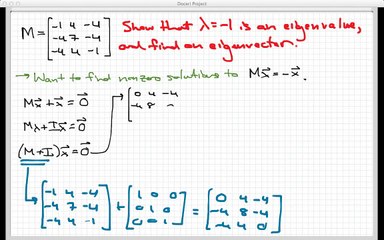 Doceri Project
M = [-1 4 -4
-4 7 -4
-4 4 -1]
Show that λ=-1 is an eigenvalue,
and find an eigenvector.
→ Want to find nonzero solutions to Mx⃗ = -x⃗.
Mx⃗ + x⃗ = 0⃗
Mx + Ix⃗ = 0⃗
(M+I)x⃗ = 0⃗
[0 4 -4
-4 8
[-1 4 -4
-4 7 -4
-4 4 -1] + [1 0 0
0 1 0
0 0 1] = [0 4 -4
-4 8 -4
-4 4 0]